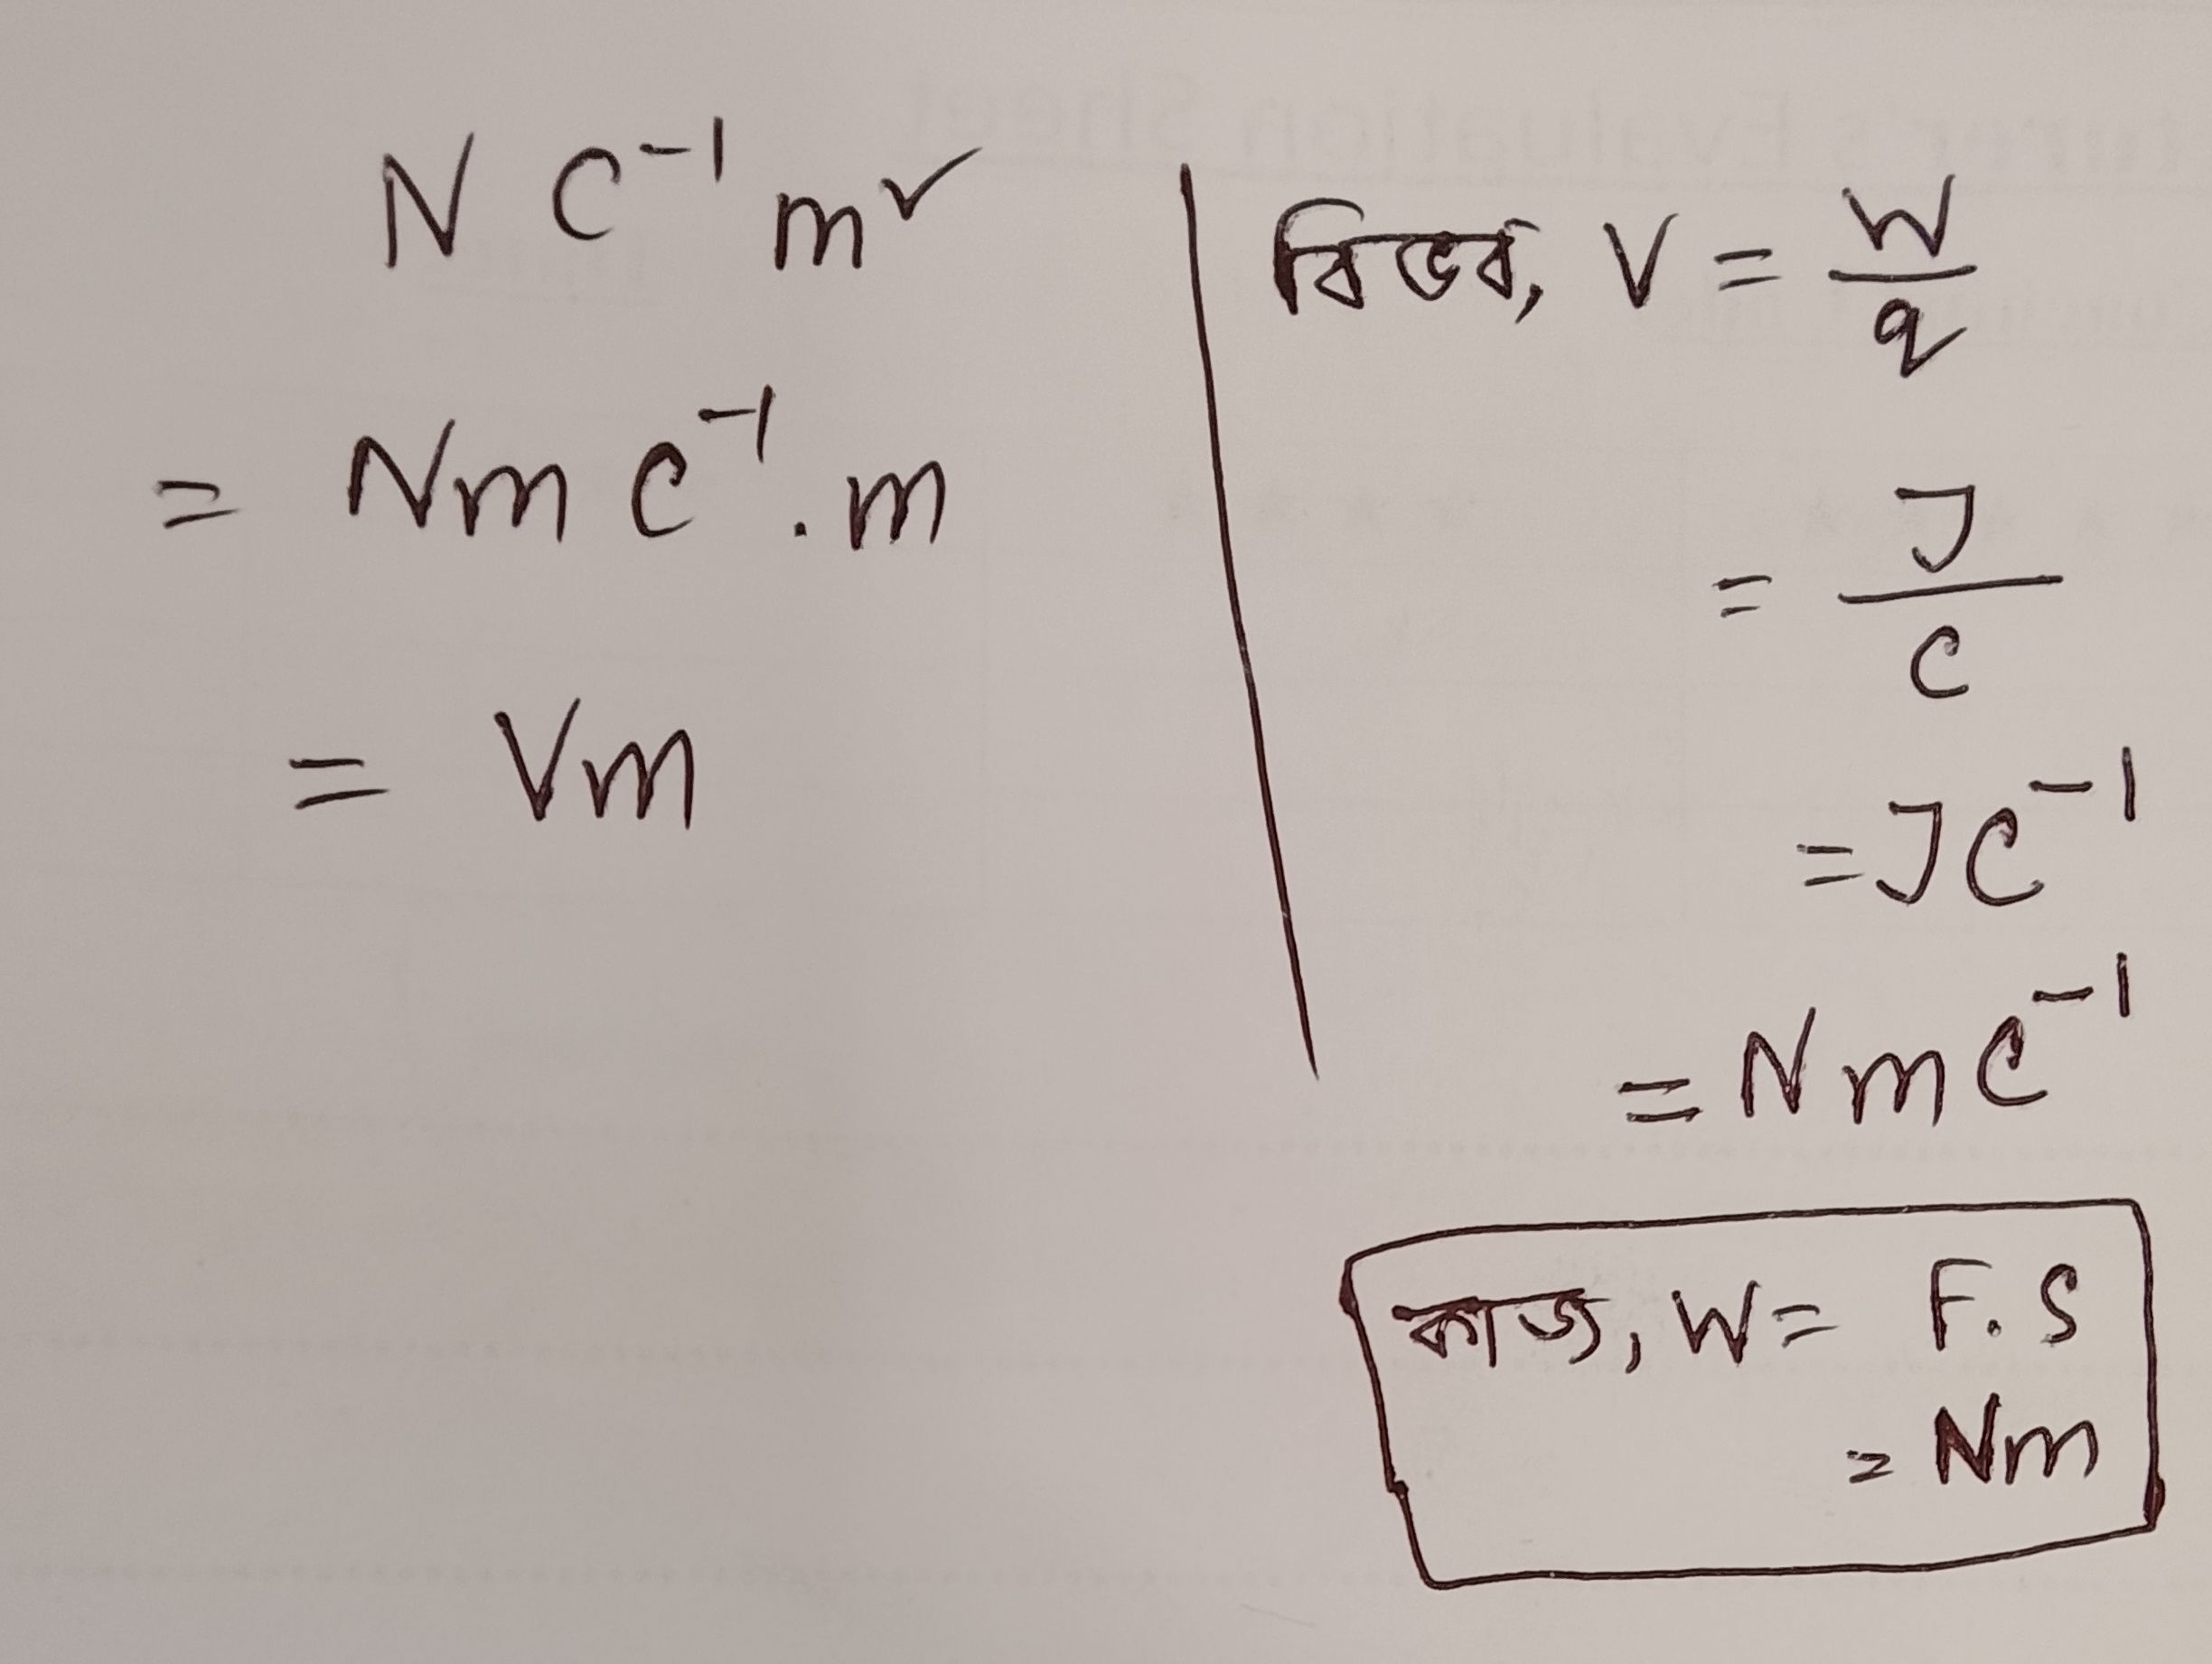 N C⁻¹ m²
= Nm C⁻¹ . m
= Vm
বিভব, V = W/q
= J/C
= JC⁻¹
= NmC⁻¹
কাজ, W = F.S
= Nm